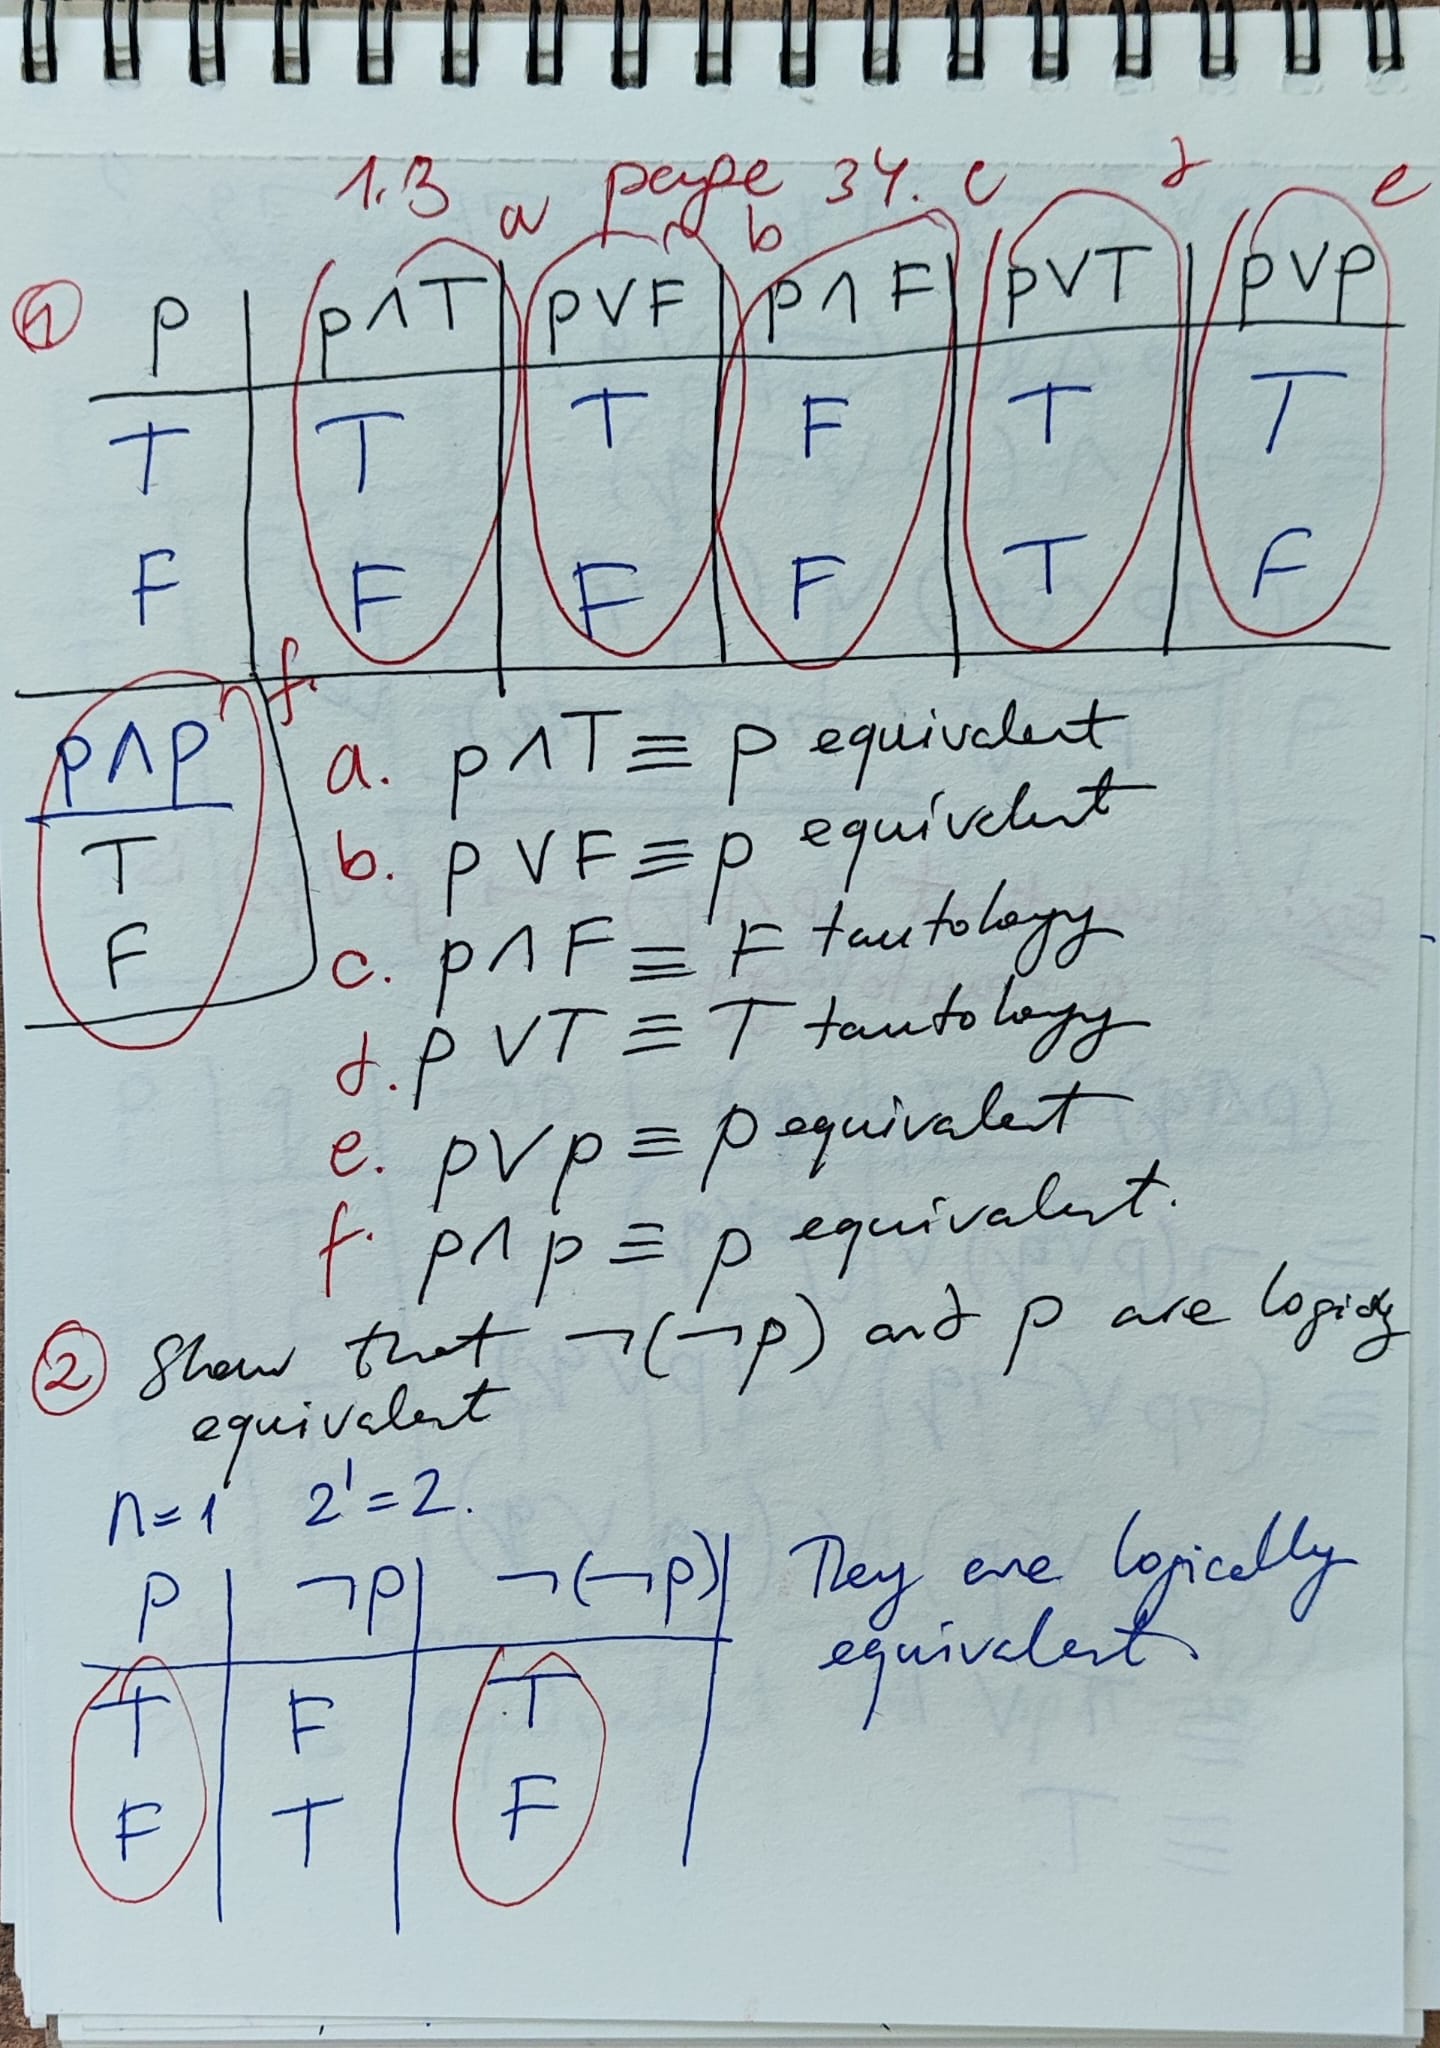 1.3 page 34.
a b c d e
① p | p∧T | p∨F | p∧F | p∨T | p∨p
T | T | T | F | T | T
F | F | F | F | T | F
f.
p∧p
T
F
a. p∧T ≡ p equivalent
b. p∨F ≡ p equivalent
c. p∧F ≡ F tautology
d. p∨T ≡ T tautology
e. p∨p ≡ p equivalent
f. p∧p ≡ p equivalent.
② Show that ¬(¬p) and p are
equivalent
n=1 2¹=2.
p | ¬p | ¬(¬p) |
T | F | T
F | T | F
They are logically
equivalent.